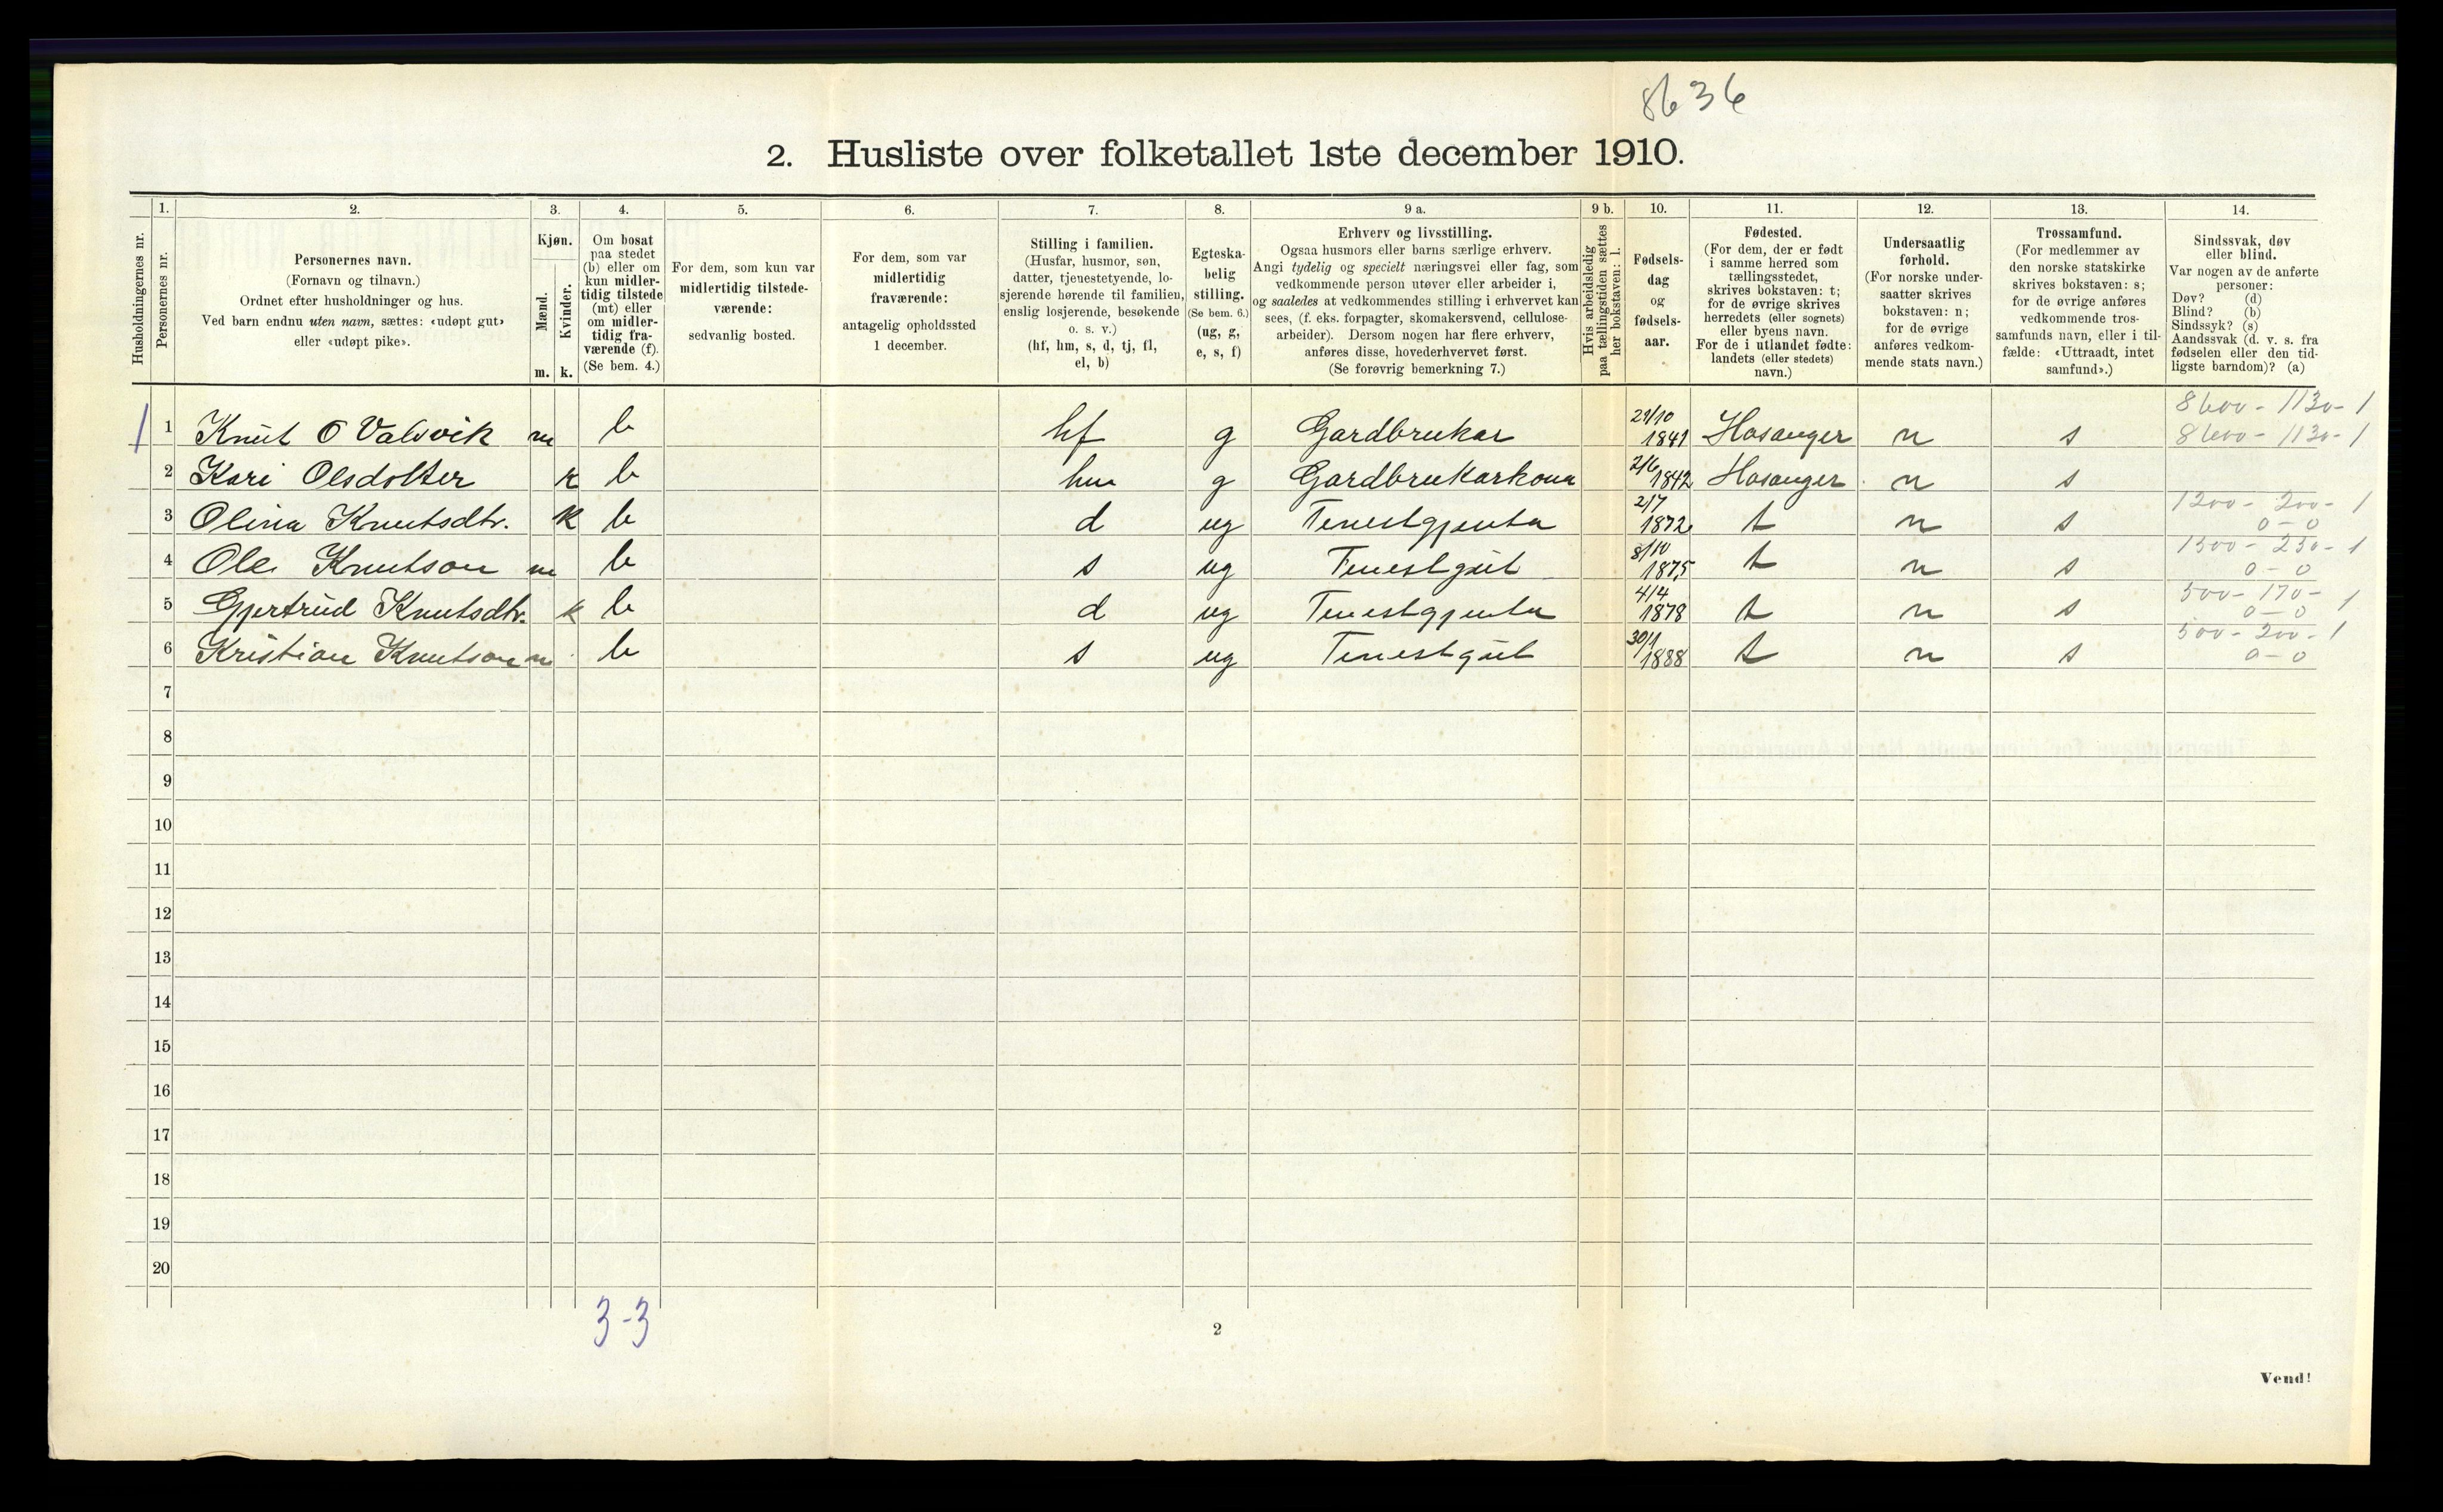 8636
2. Husliste over folketallet 1ste december 1910.
Husholdningernes nr.
1.
Personernes nr.
2.
Personernes navn.
(Fornavn og tilnavn.)
Ordnet efter husholdninger og hus.
Ved barn endnu uten navn, sættes: «udøpt gut»
eller «udøpt pike».
3.
Kjøn.
Mænd.
Kvinder.
m. k.
4.
Om bosat
paa stedet
(b) eller om
kun midler-
tidig tilstede
(mt) eller
om midler-
tidig fra-
værende (f).
(Se bem. 4.)
5.
For dem, som kun var
midlertidig tilstede-
værende:
sedvanlig bosted.
6.
For dem, som var
midlertidig
fraværende:
antagelig opholdssted
1 december.
7.
Stilling i familien.
(Husfar, husmor, søn,
datter, tjenestetyende, lo-
sjerende hørende til familien,
enslig losjerende, besøkende
o. s. v.)
(hf, hm, s, d, tj, fl,
el, b)
8.
Egteska-
belig
stilling.
(Se bem. 6.)
(ug, g,
e, s, f)
9 a.
Erhverv og livsstilling.
Ogsaa husmors eller barns særlige erhverv.
Angi tydelig og specielt næringsvei eller fag, som
vedkommende person utøver eller arbeider i,
og saaledes at vedkommendes stilling i erhvervet kan
sees, (f. eks. forpagter, skomakersvend, cellulose-
arbeider). Dersom nogen har flere erhverv,
anføres disse, hovederhvervet først.
(Se forøvrig bemerkning 7.)
9 b.
Hvis arbeidsledig
paa tællingstiden sættes
her bokstaven: l.
10.
Fødsels-
dag
og
fødsels-
aar.
11.
Fødested.
(For dem, der er født
i samme herred som
tællingsstedet,
skrives bokstaven: t;
for de øvrige skrives
herredets (eller sognets)
eller byens navn.
For de i utlandet fødte:
landets (eller stedets)
navn.)
12.
Undersaatlig
forhold.
(For norske under-
saatter skrives
bokstaven: n;
for de øvrige
anføres vedkom-
mende stats navn.)
13.
Trossamfund.
(For medlemmer av
den norske statskirke
skrives bokstaven: s;
for de øvrige anføres
vedkommende tros-
samfunds navn, eller i til-
fælde: «Uttraadt, intet
samfund».)
14.
Sindssvak, døv
eller blind.
Var nogen av de anførte
personer:
Døv? (d)
Blind? (b)
Sindssyk? (s)
Aandssvak (d. v. s. fra
fødselen eller den tid-
ligste barndom)? (a)
8600 - 1130 - 1
1 1 Knut O Valsvik m b hf g Gardbrukar 21/10 1841 Hosanger n s 8600 - 1130 - 1
2 Kari Olsdotter k b hm g Gardbrukarkona 2/6 1842 Hosanger n s
3 Olina Knutsdtr. k b d ug Tenestgjenta 2/7 1872 t n s 1200 - 200 - 1 0 - 0
4 Ole Knutson m b s ug Tenestgut 8/10 1875 t n s 1500 - 250 - 1 0 - 0
5 Gjertrud Knutsdtr. k b d ug Tenestgjenta 4/4 1878 t n s 500 - 170 - 1 0 - 0
6 Kristian Knutson m b s ug Tenestgut 30/1 1888 t n s 500 - 200 - 1 0 - 0
7
8
9
10
11
12
13
14
15
16
17
18
19
20
3-3
2
Vend!